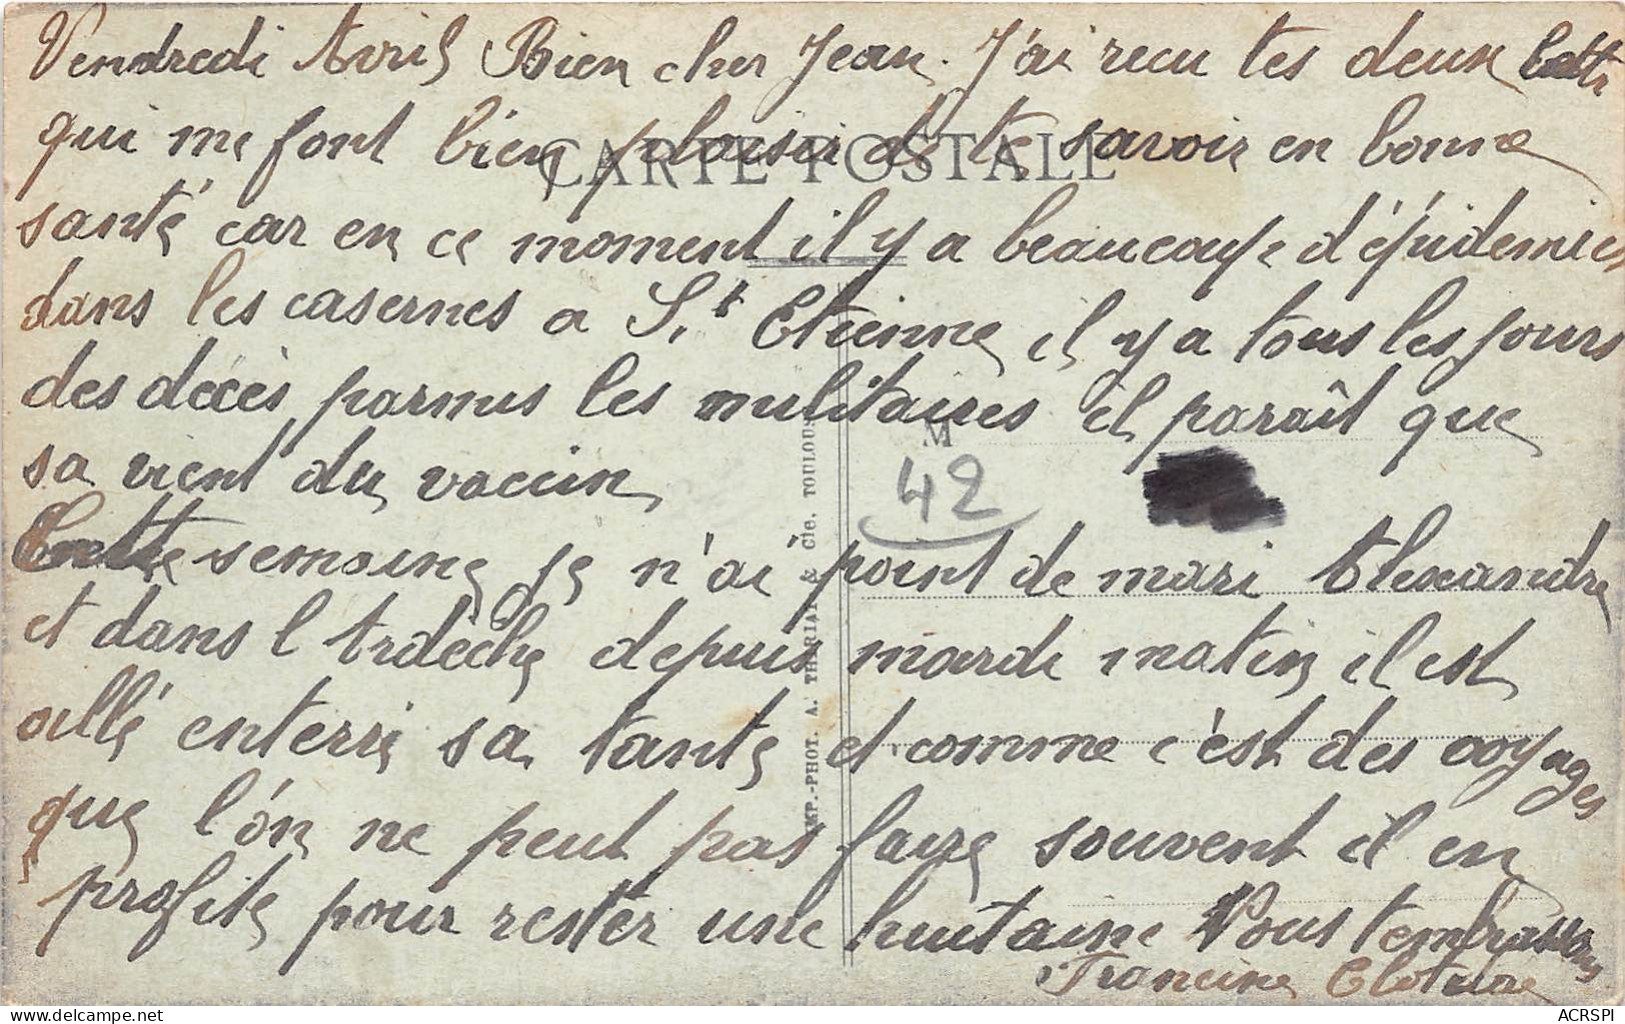 Vendredi Avril Bien cher Jean. J'ai recu tes deux lettr
qui me font bien plaisir de te savoir en bonne
CARTE POSTALE
santé car en ce moment il y a beaucoup d'épidemies
dans les casernes a St Etienne il y a tous les jours
des décès parmis les militaires il paraît que
sa vient du vaccin
M
42
Cette semaine je n'ai point de mari Alexandre
et dans l Ardèche depuis mardi matin il est
allé enterré sa tante et comme c'est des voyages
que l'on ne peut pas faire souvent il en
profite pour rester une huitaine Nous t'embrassons
Francine Clotilde
IMP.-PHOT. A. THIRIAT & Cie. TOULOUSE
ACRSPI